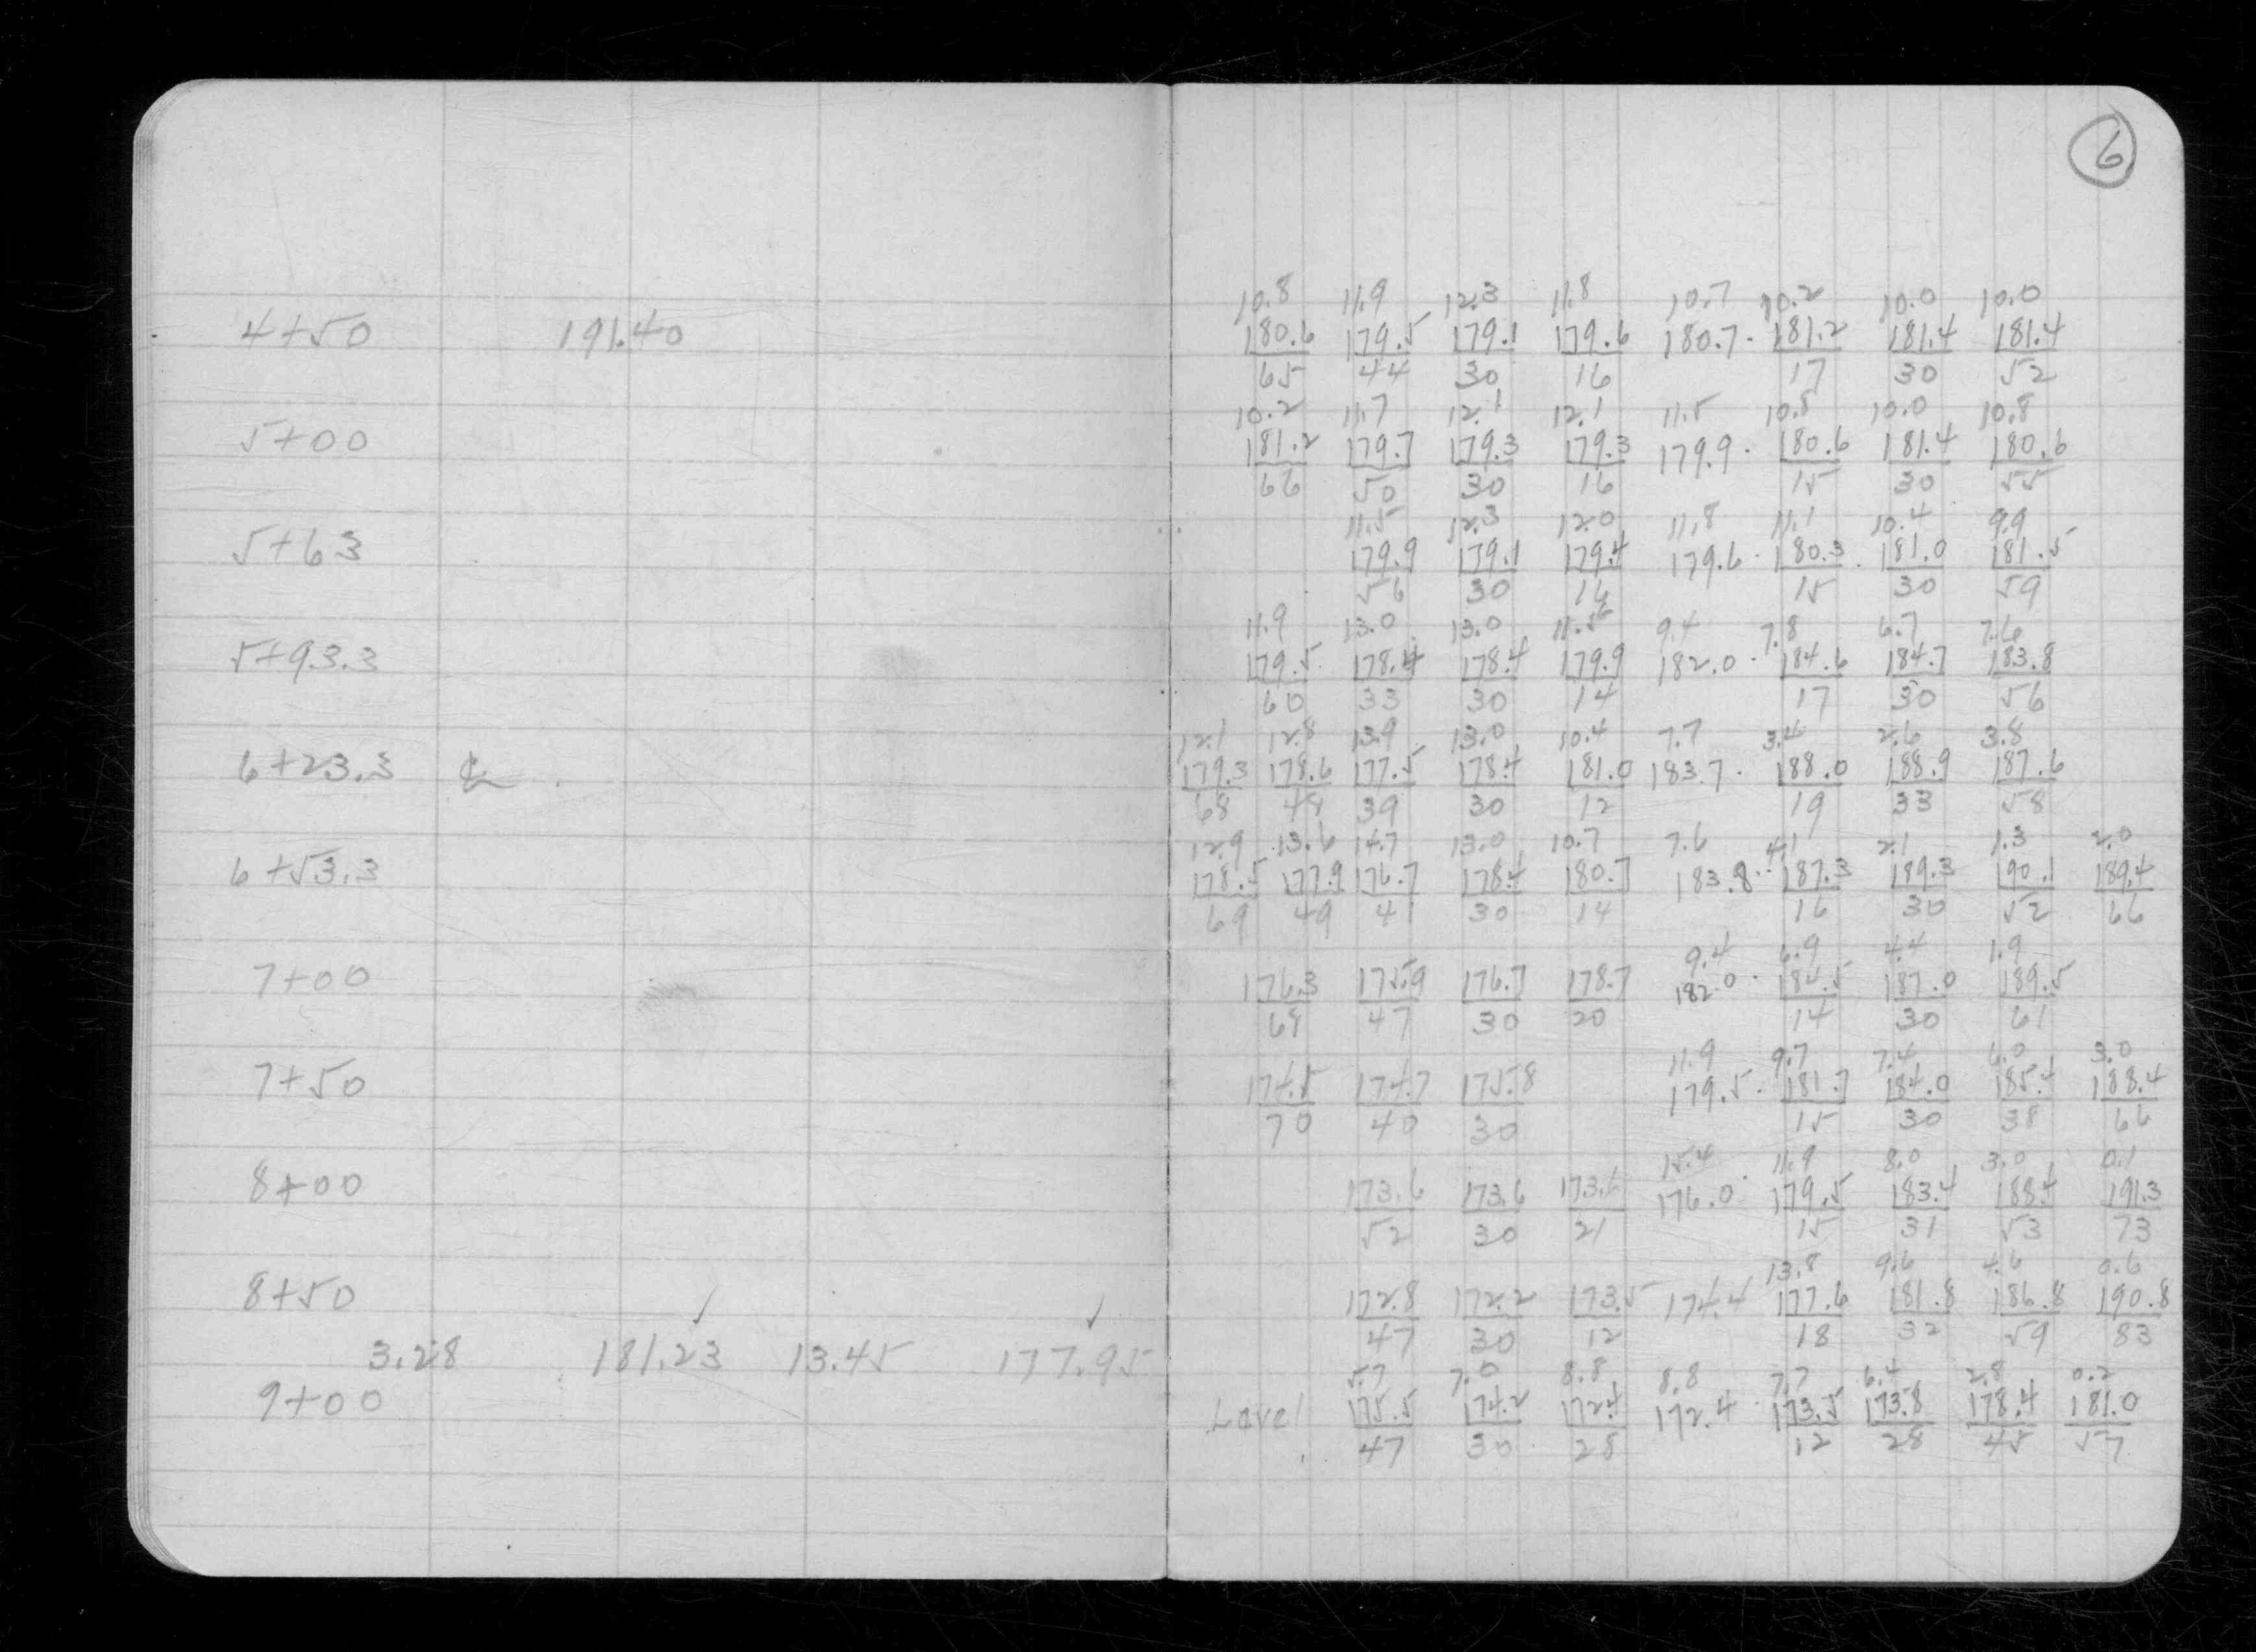 6
10.8 11.9 12.3 11.8 10.7 10.2 10.0 10.0
4+50 191.40 180.6 179.5 179.1 179.6 180.7 181.2 181.4 181.4
65 44 30 16 17 30 52
10.2 11.7 12.1 12.1 11.5 10.8 10.0 10.8
5+00 181.2 179.7 179.3 179.3 179.9 180.6 181.4 180.6
66 50 30 16 15 30 55
11.5 12.3 12.0 11.8 11.1 10.4 9.9
5+63 179.9 179.1 179.4 179.6 180.3 181.0 181.5
56 30 16 15 30 59
11.9 13.0 13.0 11.5 9.4 7.8 6.7 7.6
5+93.3 179.5 178.4 178.4 179.9 182.0 184.6 184.7 183.8
60 33 30 14 17 30 56
12.1 12.8 13.9 13.0 10.4 7.7 3.4 2.6 3.8
6+23.3 ℄ 179.3 178.6 177.5 178.4 181.0 183.7 188.0 188.9 187.6
68 48 39 30 12 19 33 58
12.9 13.6 14.7 13.0 10.7 7.6 4.1 2.1 1.3 2.0
6+53.3 178.5 177.9 176.7 178.4 180.7 183.8 187.3 189.3 190.1 189.4
69 49 41 30 14 16 30 52 66
9.4 6.9 4.4 1.9
7+00 176.3 175.9 176.7 178.7 182.0 184.5 187.0 189.5
69 47 30 20 14 30 61
11.9 9.7 7.4 6.0 3.0
7+50 174.5 174.7 175.8 179.5 181.7 184.0 185.4 188.4
70 40 30 15 30 38 66
15.4 11.9 8.0 3.0 0.1
8+00 173.6 173.6 173.6 176.0 179.5 183.4 188.4 191.3
52 30 21 15 31 53 73
13.8 9.6 4.6 0.6
8+50 172.8 172.2 173.5 174.4 177.6 181.8 186.8 190.8
47 30 12 18 32 59 83
3.28 181.23 13.45 177.95
5.7 7.0 8.8 8.8 7.7 6.4 2.8 0.2
9+00 Level 175.5 174.2 172.4 172.4 173.5 173.8 178.4 181.0
47 30 28 12 28 45 57